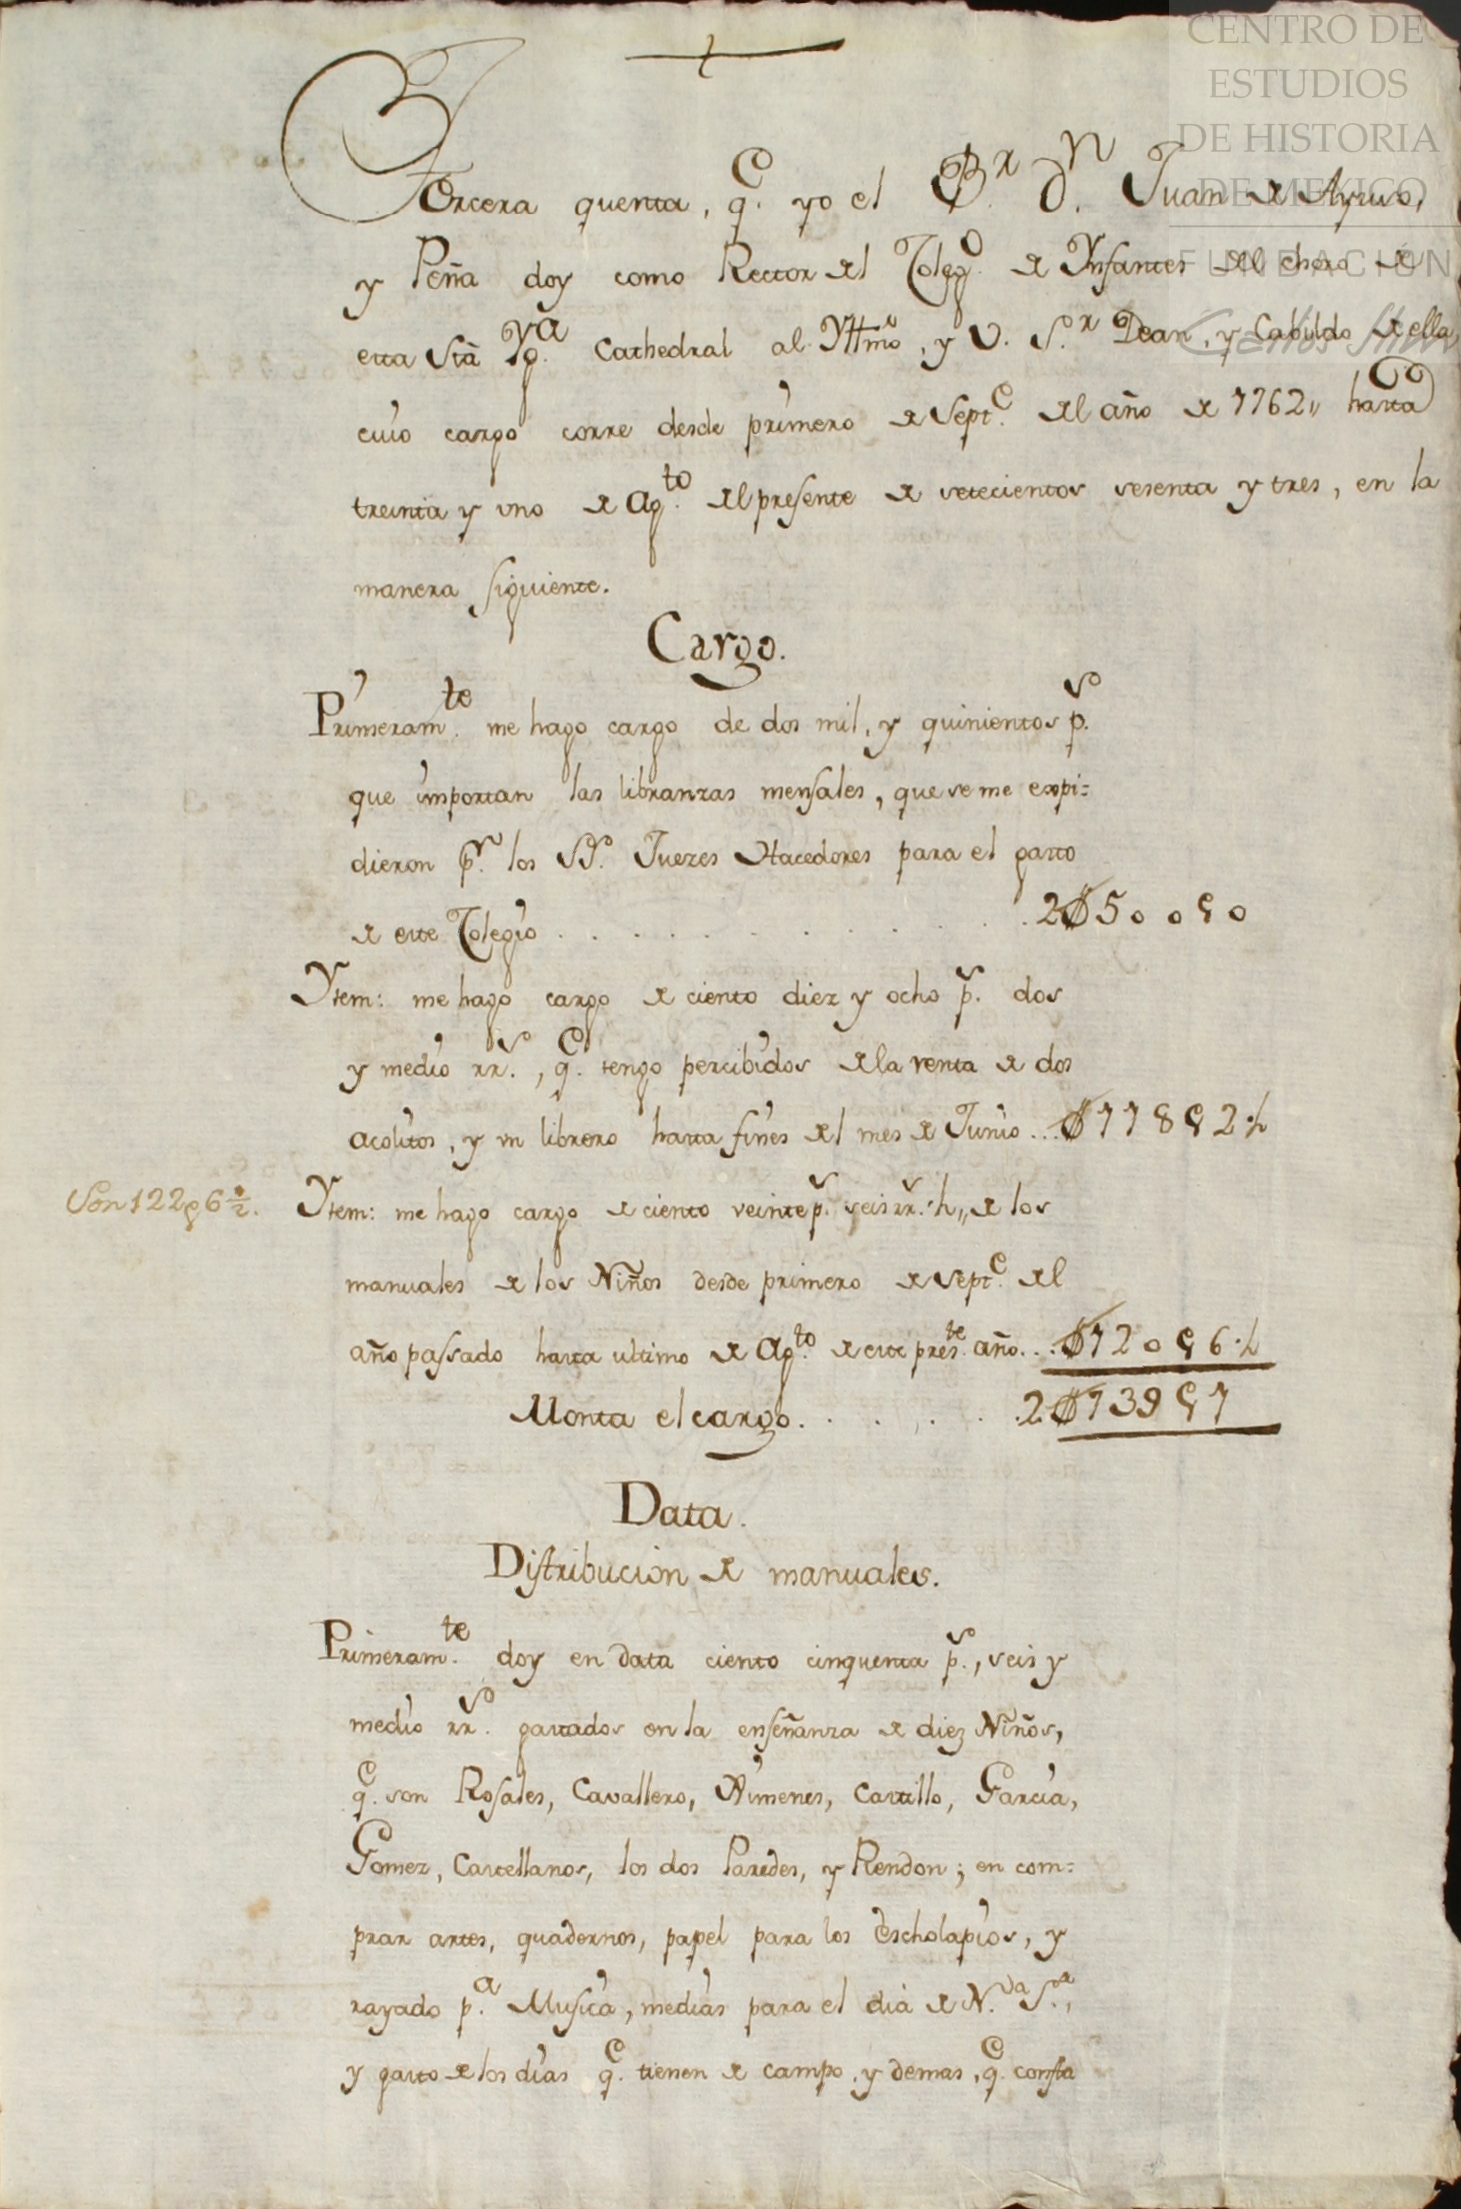 CENTRO DE
ESTUDIOS
DE HISTORIA
DE MEXICO
FUNDACIÓN
Carlos Slim
Tercera quenta, q.e yo el B.r D.n Juan de
y Peña doy como Rector del Coleg.o de Ynfantes del choro de
esta Sta Yg.a Cathedral al Yllmo, y V. S.r Dean, y Cabildo de ella,
cuio cargo corre desde primero de Sept.e del año de 1762,, hasta
treinta y uno de Ag.to del presente de setecientos sesenta y tres, en la
manera siguiente.
Cargo.
Primeram.te me hago cargo de dos mil, y quinientos p.s
que importan las libranzas mensales, que se me expi=
dieron p.r los SS.s Juezes Hacedores para el gasto
de este Colegio . . . . . . . . . . . . 2$500 ς 0
Ytem: me hago cargo de ciento diez y ocho p.s dos
y medio rr.s, q.e tengo percibidos de la renta de dos
acolitos, y un librero hasta fines del mes de Junio... $118 ς 2½
Son 122 ς 6½.
Ytem: me hago cargo de ciento veinte p.s seis rr.s ½,, de los
manuales de los Niños desde primero de Sept.e del
año passado hasta ultimo de Ag.to de este pres.te año... $120 ς 6½
Monta el cargo. . . . . . 2$739 ς 1
Data.
Distribucion de manuales.
Primeram.te doy en Data ciento cinquenta p.s, seis y
medio rr.s gastados en la enseñanza de diez Niños,
q.e son Rosales, Cavallero, Ximenes, Castillo, Garcia,
Gomez, Castellanos, los dos Paredes, y Rendon; en com=
prar artes, quadernos, papel para los Escholapios, y
rayado p.a Musica, medias para el dia de N.ra S.ra,
y gasto de los dias q.e tienen de campo, y demas, q.e consta